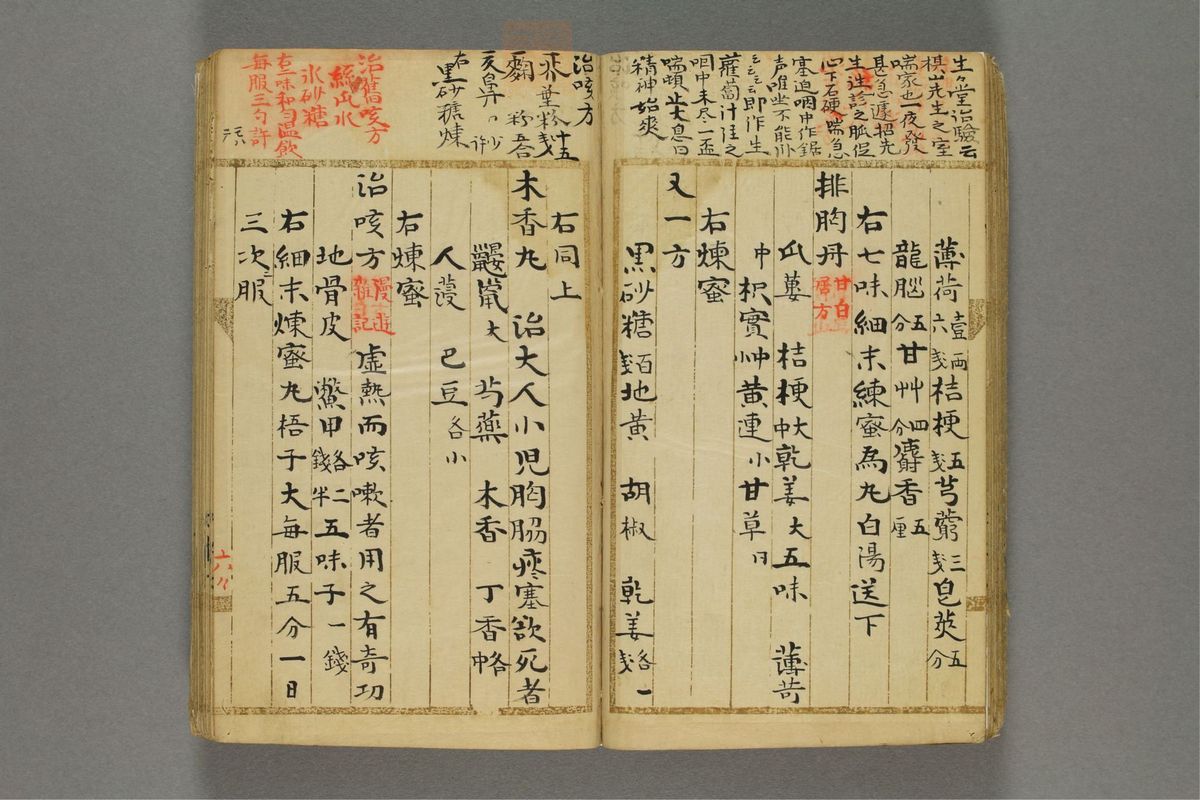 生々堂治驗云
棋山先生之室
喘家也一夜發
甚急遽招先
生往診之脈促
心下石硬喘急
塞迫咽中作鋸
声唯坐不能臥
云云即作生
蘿蔔汁注之
咽中未尽一盃
喘頓止大息曰
精神始爽
薄荷壹兩六戔桔梗五戔芎藭三戔皂莢五分
龍脳五分甘艸四分麝香五厘
右七味細末練蜜為丸白湯送下
排胸丹
甘白
方
瓜蔞中桔梗大中乾姜大五味薄荷
枳實艸黄連小甘草日
右煉蜜
又一方
黒砂糖百戔地黄胡椒乾姜各一戔
治咳方
葉粉十五戔
粉五合
右黒砂糖煉
治舊咳方
絲瓜水
氷砂糖
右二味和匀温飲
毎服三勺許
右同上
木香丸治大人小児胸脇痰塞欲死者
鼴鼠大芍藥木香丁香各中
人蓡巴豆各小
右煉蜜
治咳方漫遊雜記虚熱而咳嗽者用之有奇功
地骨皮鱉甲各二錢半五味子一錢
右細末煉蜜丸梧子大毎服五分一日
三次ニ服